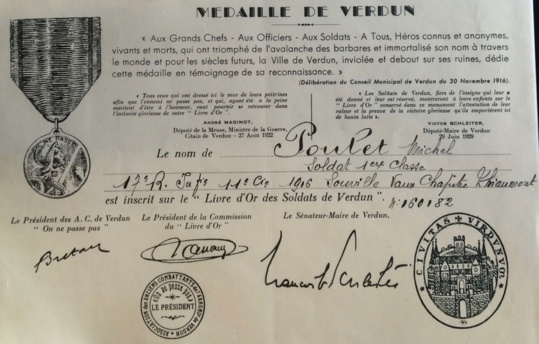 MEDAILLE DE VERDUN
« Aux Grands Chefs - Aux Officiers - Aux Soldats - A Tous, Héros connus et anonymes,
vivants et morts, qui ont triomphé de l'avalanche des barbares et immortalisé son nom à travers
le monde et pour les siècles futurs, la Ville de Verdun, inviolée et debout sur ses ruines, dédie
cette médaille en témoignage de sa reconnaissance. »
(Délibération du Conseil Municipal de Verdun du 20 Novembre 1916).
« Tous ceux qui ont dressé ici le mur de leurs poitrines
afin que l'ennemi ne passe pas, et qui, ayant été à la peine
méritent d'être à l'honneur, vont pouvoir se retrouver dans
l'intimité glorieuse de notre " Livre d'Or ".
ANDRÉ MAGINOT,
Député de la Meuse, Ministre de la Guerre,
Citain de Verdun - 27 Août 1922
« Les Soldats de Verdun, fiers de l'insigne qui leur
a été donné et leur est réservé, montreront à leurs enfants sur le
" Livre d'Or " conservé dans ce monument l'attestation de leur
valeur et la preuve de la victoire glorieuse qu'ils emportèrent ici
de haute lutte ».
VICTOR SCHLEITER,
Député-Maire de Verdun
23 Juin 1929
Le nom de Poulet Michel
Soldat 1ere Classe
17e R. Infie 11e Cie 1916 Souville Vaux Chapitre Thiaumont
est inscrit sur le " Livre d'Or des Soldats de Verdun ". N° 160182
Le Président des A. C. de Verdun
" On ne passe pas "
Le Président de la Commission
du " Livre d'Or "
Le Sénateur-Maire de Verdun,
LE PRÉSIDENT
CIVITAS VIRDVNVM